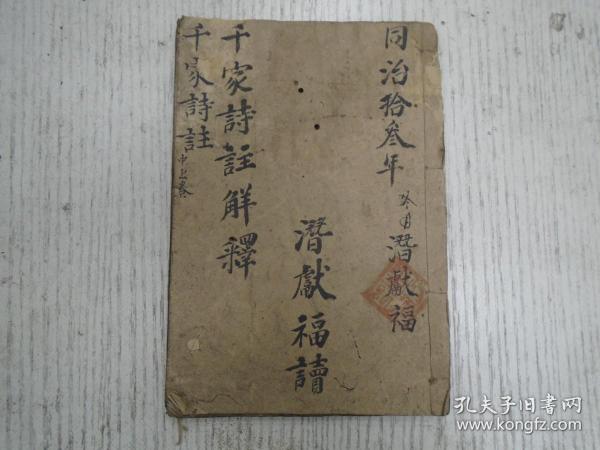 同治拾叁年
潛獻福
潛獻福讀
千家詩註解釋
千家詩註
中上卷
孔夫子旧书网
www.kongfz.com